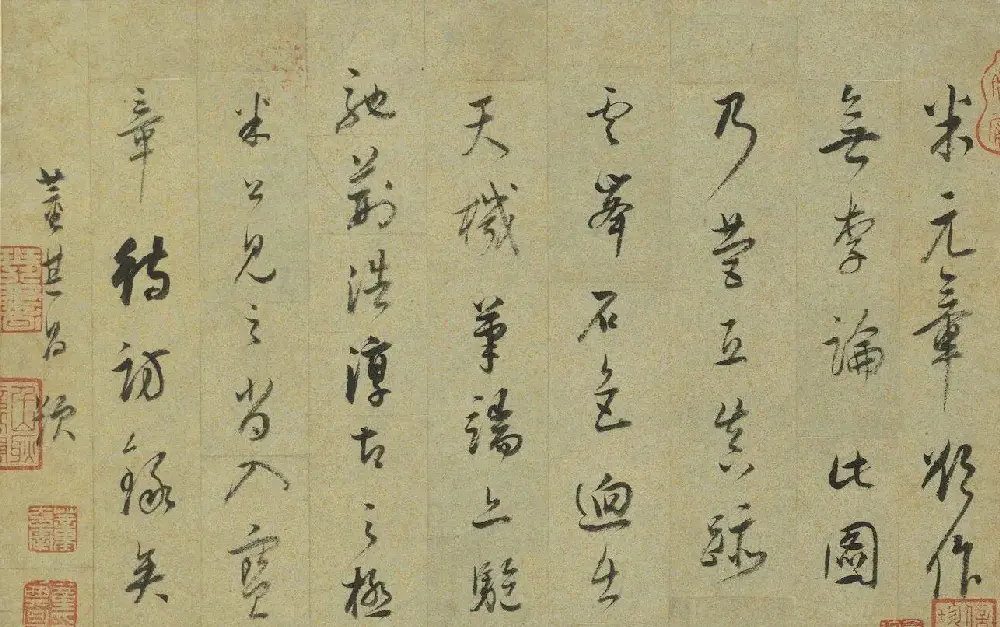 米元章欲作
無李論此圖
乃營丘真跡
雲峯石色迥出
天機筆端上駈
馳荊浩淳古之極
米公見之當入寶
章待訪錄矣
董其昌題